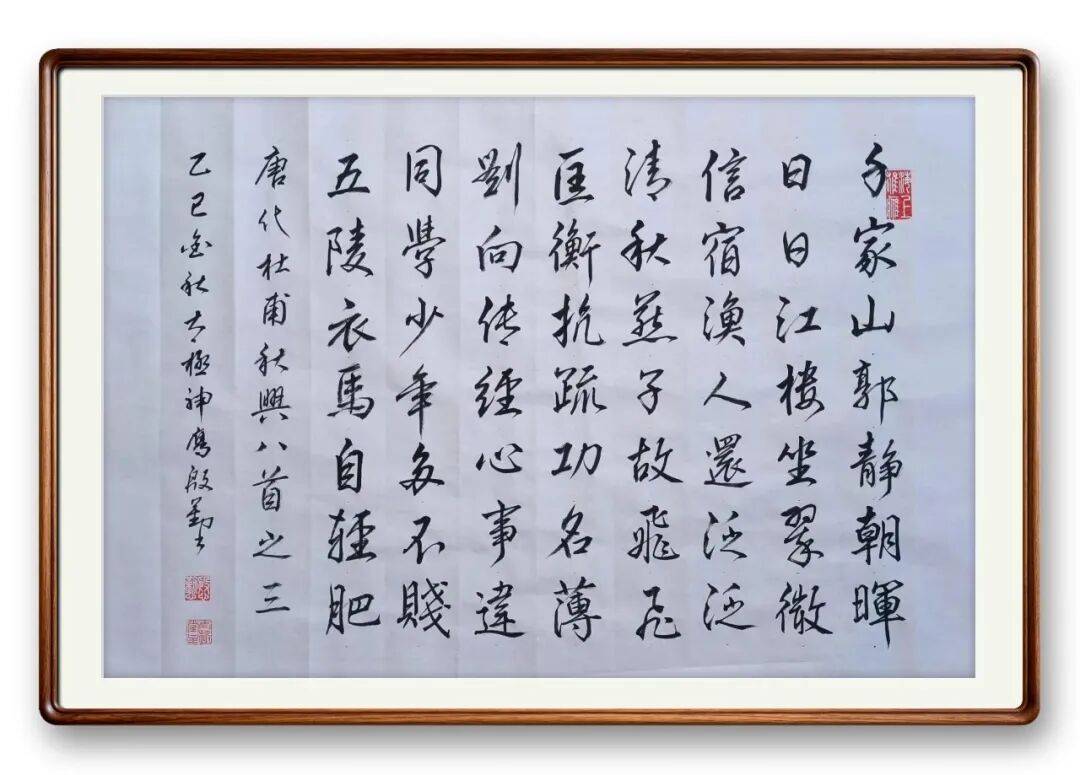 千家山郭静朝暉
日日江楼坐翠微
信宿漁人還泛泛
清秋燕子故飛飛
匡衡抗疏功名薄
劉向传經心事違
同學少年多不賤
五陵衣馬自輕肥
唐代杜甫秋興八首之三
乙巳金秋太極神鷹殷勤